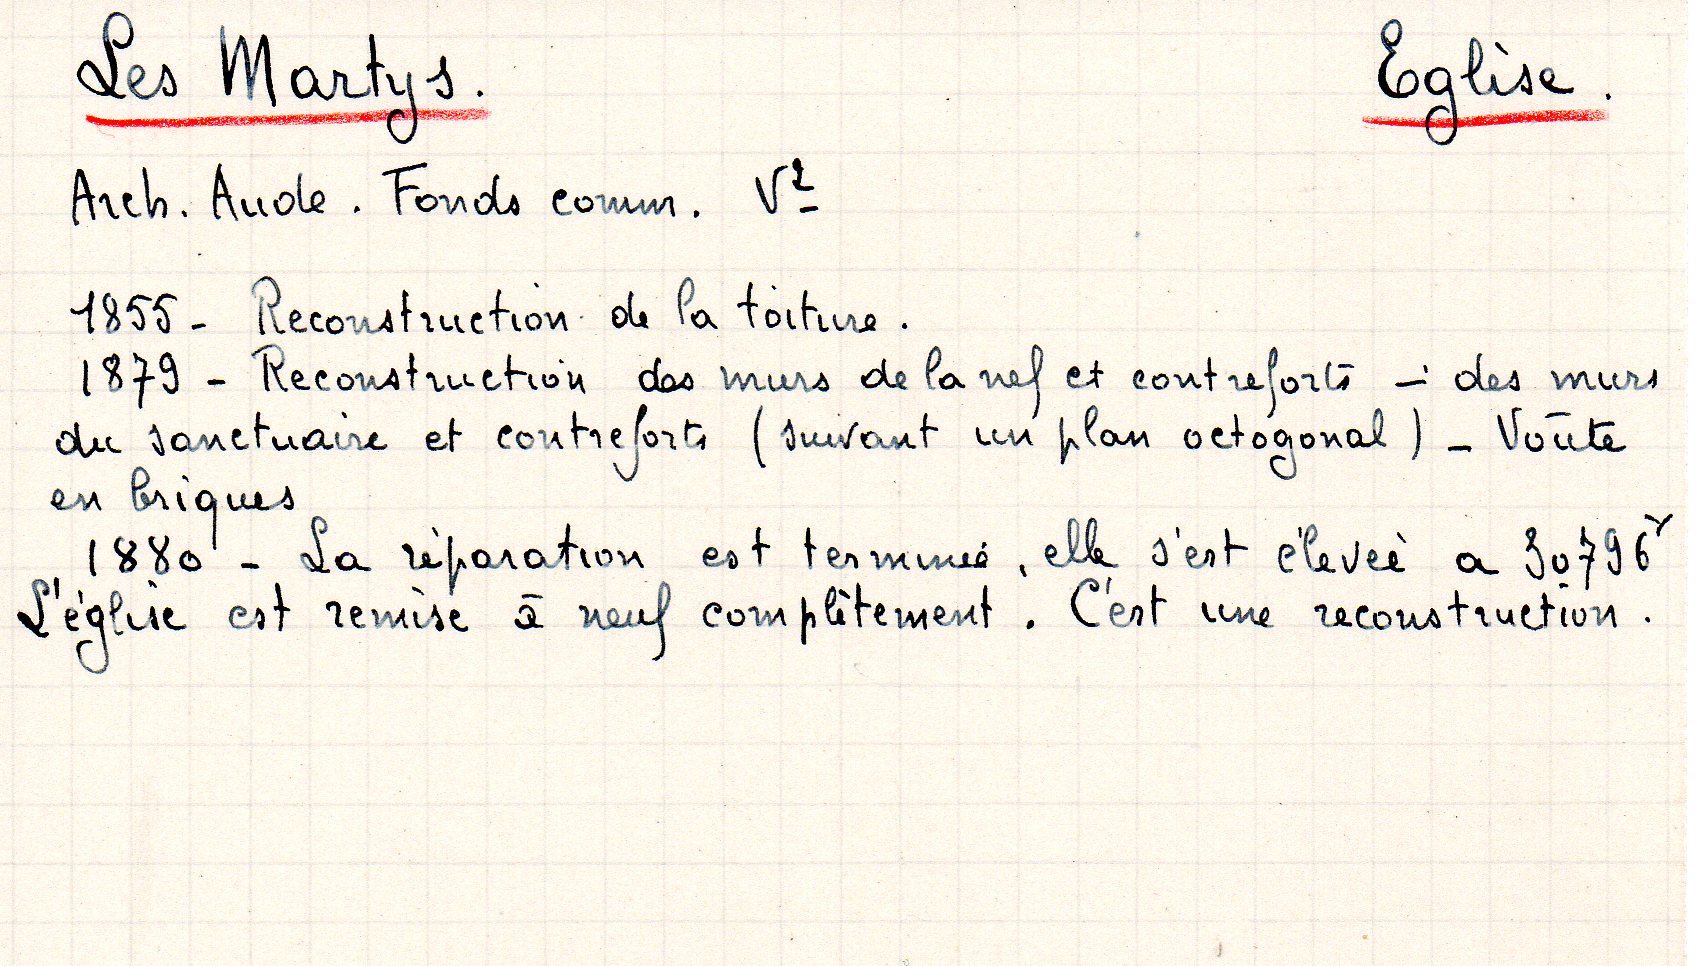 Les Martys. Eglise.
Arch. Aude. Fonds comm. V²
1855 - Reconstruction de la toiture.
1879 - Reconstruction des murs de la nef et contreforts - des murs
du sanctuaire et contreforts (suivant un plan octogonal) - Voûte
en briques
1880 - La réparation est terminée, elle s'est élevée a 30796
L'église est remise à neuf complètement. C'est une reconstruction.